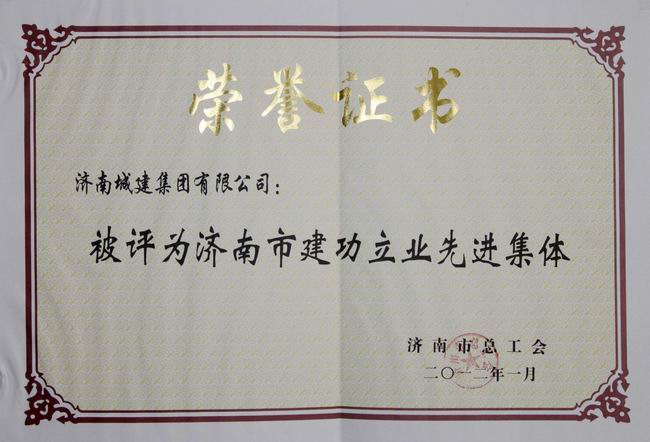 荣誉证书
济南城建集团有限公司：
被评为济南市建功立业先进集体
济南市总工会
二〇一二年一月